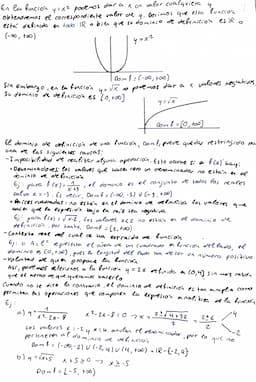 En la función y=x² podemos dar a x un valor cualquiera y
obtendremos el correspondiente valor de y. Decimos que esta función
está definida en todo ℝ o bien que su dominio de definición es ℝ o
(-∞, +∞)
y=x²
Dom f=(-∞, +∞)
Sin embargo, en la función y=√x no podemos dar a x valores negativos.
Su dominio de definición es [0, +∞)
y=√x
Dom f=[0, +∞)
El dominio de definición de una función, Dom f, puede quedar restringido por
una de las siguientes causas:
-Imposibilidad de realizar alguna operación. Esto ocurre si en f(x) hay:
-Denominadores: los valores que hacen cero un denominador no están en el
dominio de definición
Ej: para f(x)=1/ , el dominio es el conjunto de todos los reales
salvo x=-3. Es decir, Dom f=(-∞, -3) ∪ (-3, +∞)
-Raíces cuadradas: no están en el dominio de definición los valores que
hacen que la expresión bajo la raíz sea negativa
Ej: para f(x)=√ , los valores no están en el dominio de
definición, por tanto, Dom f= , +∞)
-Contexto real del cual se ha extraído la función.
Ej: A=l² expresa el área de un cuadrado en función del lado, el
dominio es (0, +∞), pues la longitud del lado ha de ser un número positivo
-Voluntad de quien propone la función.
Así, podemos referirnos a la función y=2x definida en [0,4] sin más razón
que el deseo de que hacerlo
Cuando no se cite lo contrario, el dominio de definición es tan amplio como
permitan las operaciones que componen la expresión analítica de la función
Ej:
a) y=1/x²-2x-8 x²-2x-8=0 → x=2±√4+32/2=2±6/2 4 -2
Los valores x=-2 y x=4 anulan el denominador, por lo que no
pertenecen al dominio de definición
Dom f=(-∞, -2) ∪ (-2, 4) ∪ (4, +∞) = ℝ-{-2, 4}
b) y=√x+5 x+5≥0 → x≥-5
Dom f=[-5, +∞)